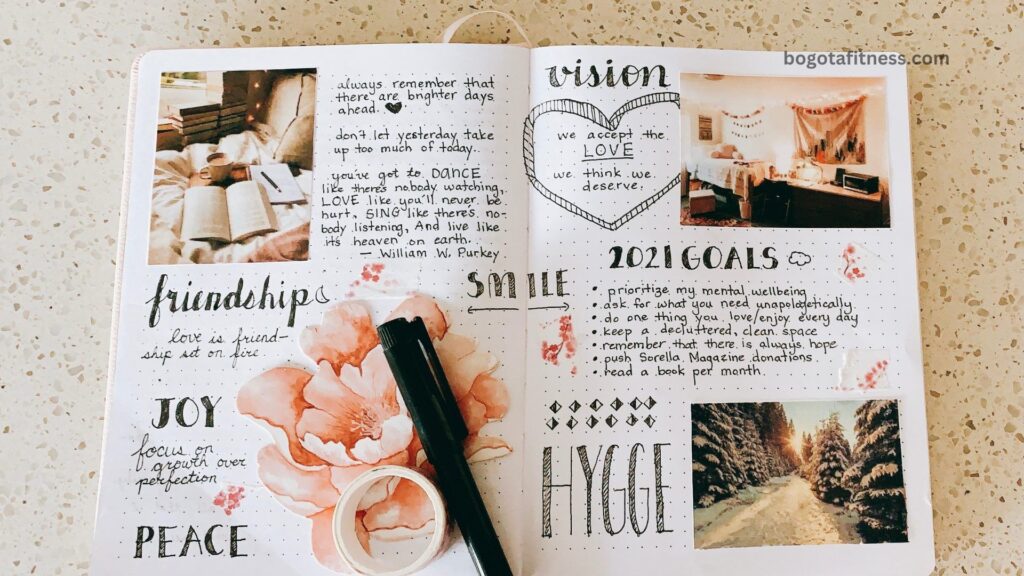 bogotafitness.com
always remember that
there are brighter days
ahead.
don't let yesterday take
up too much of today.
you've got to DANCE
like there's nobody watching,
LOVE like you'll never be
hurt, SING like there's no-
body listening, And live like
it's heaven on earth.
— William W. Purkey
friendship
love is friend-
ship set on fire
JOY
focus on
growth over
perfection
PEACE
SMILE
vision
we accept the
LOVE
we think we
deserve.
2021 GOALS
• prioritize my mental wellbeing
• ask for what you need unapologetically
• do one thing you love/enjoy every day
• keep a decluttered, clean space
• remember that there is always hope
• push Sorella Magazine donations.
• read a book per month.
HYGGE